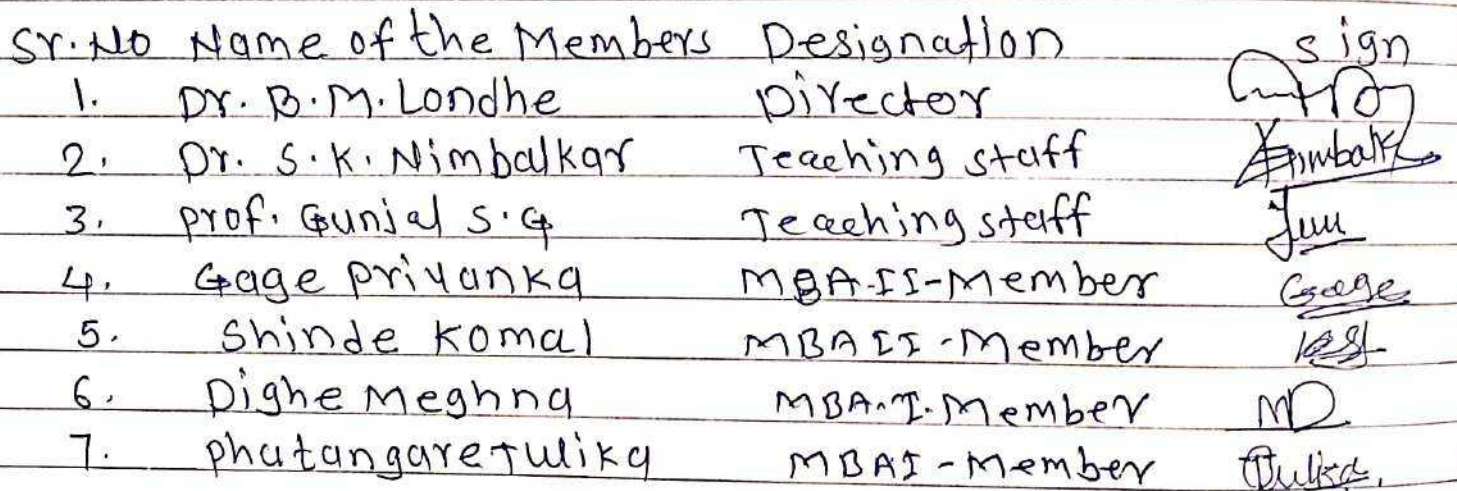 Sr.No Name of the Members Designation sign
1. Dr. B.M. Londhe Director
2. Dr. S.K. Nimbalkar Teaching staff Nimbalk
3. Prof. Gunjal S.G Teaching staff
4. Gage Priyanka MBA-II-Member Gage
5. Shinde Komal MBA II-Member
6. Dighe Meghna MBA-I-Member MD
7. Phatangare Tulika MBAI-Member Tulika.